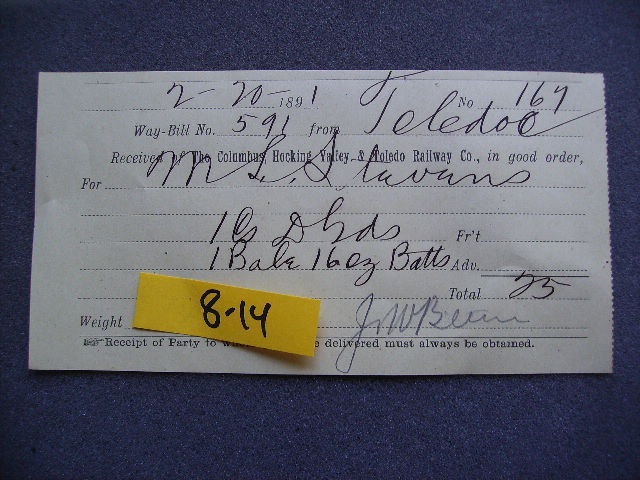 2-20-1891 No 167
Way-Bill No. 591 from Teledoe
Received of The Columbus, Hocking Valley & Toledo Railway Co., in good order,
For M L. Stavans
1 Cs D Gds Fr't
1 Bale 16 oz Batts Adv.
Total 25
Weight
8-14
Receipt of Party to delivered must always be obtained.